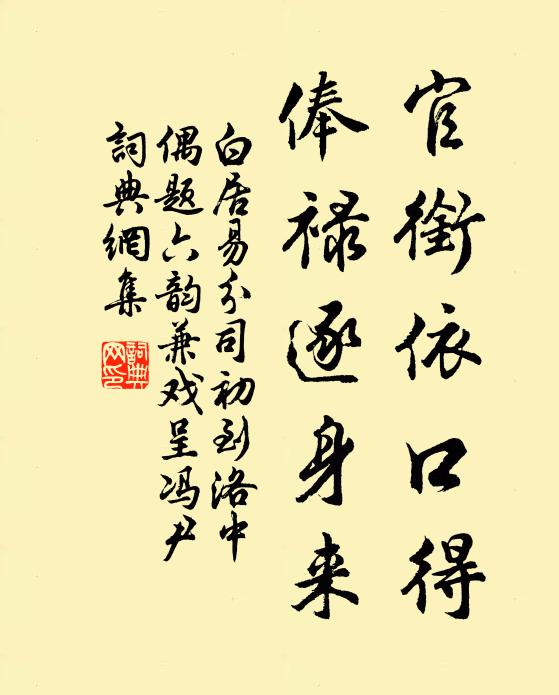 官銜依口得
俸祿逐身来
白居易分司初到洛中
偶题六韵兼戏呈冯尹
詞典網集
詞典网印